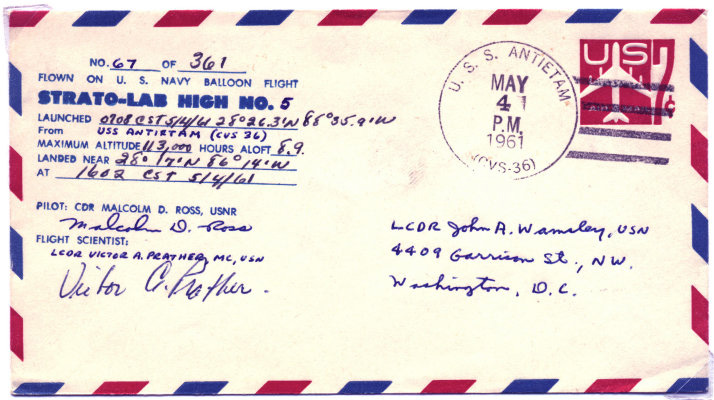 NO. 67 OF 361
FLOWN ON U. S. NAVY BALLOON FLIGHT
STRATO-LAB HIGH NO. 5
LAUNCHED 0708 CST 5/4/61 28°26.3'N 88°35.9'W
From USS ANTIETAM (CVS 36)
MAXIMUM ALTITUDE 113,000 HOURS ALOFT 8.9
LANDED NEAR 28° 17'N 86° 14'W
AT 1602 CST 5/4/61
PILOT: CDR MALCOLM D. ROSS, USNR
Malcolm D. Ross
FLIGHT SCIENTIST:
LCDR VICTOR A. PRATHER, MC, USN
Victor A. Prather.
U. S. S. ANTIETAM
MAY
4
P.M.
1961
(CVS-36)
US 7¢
LCDR John A. Wamsley, USN
4409 Garrison St., NW.
Washington, D.C.